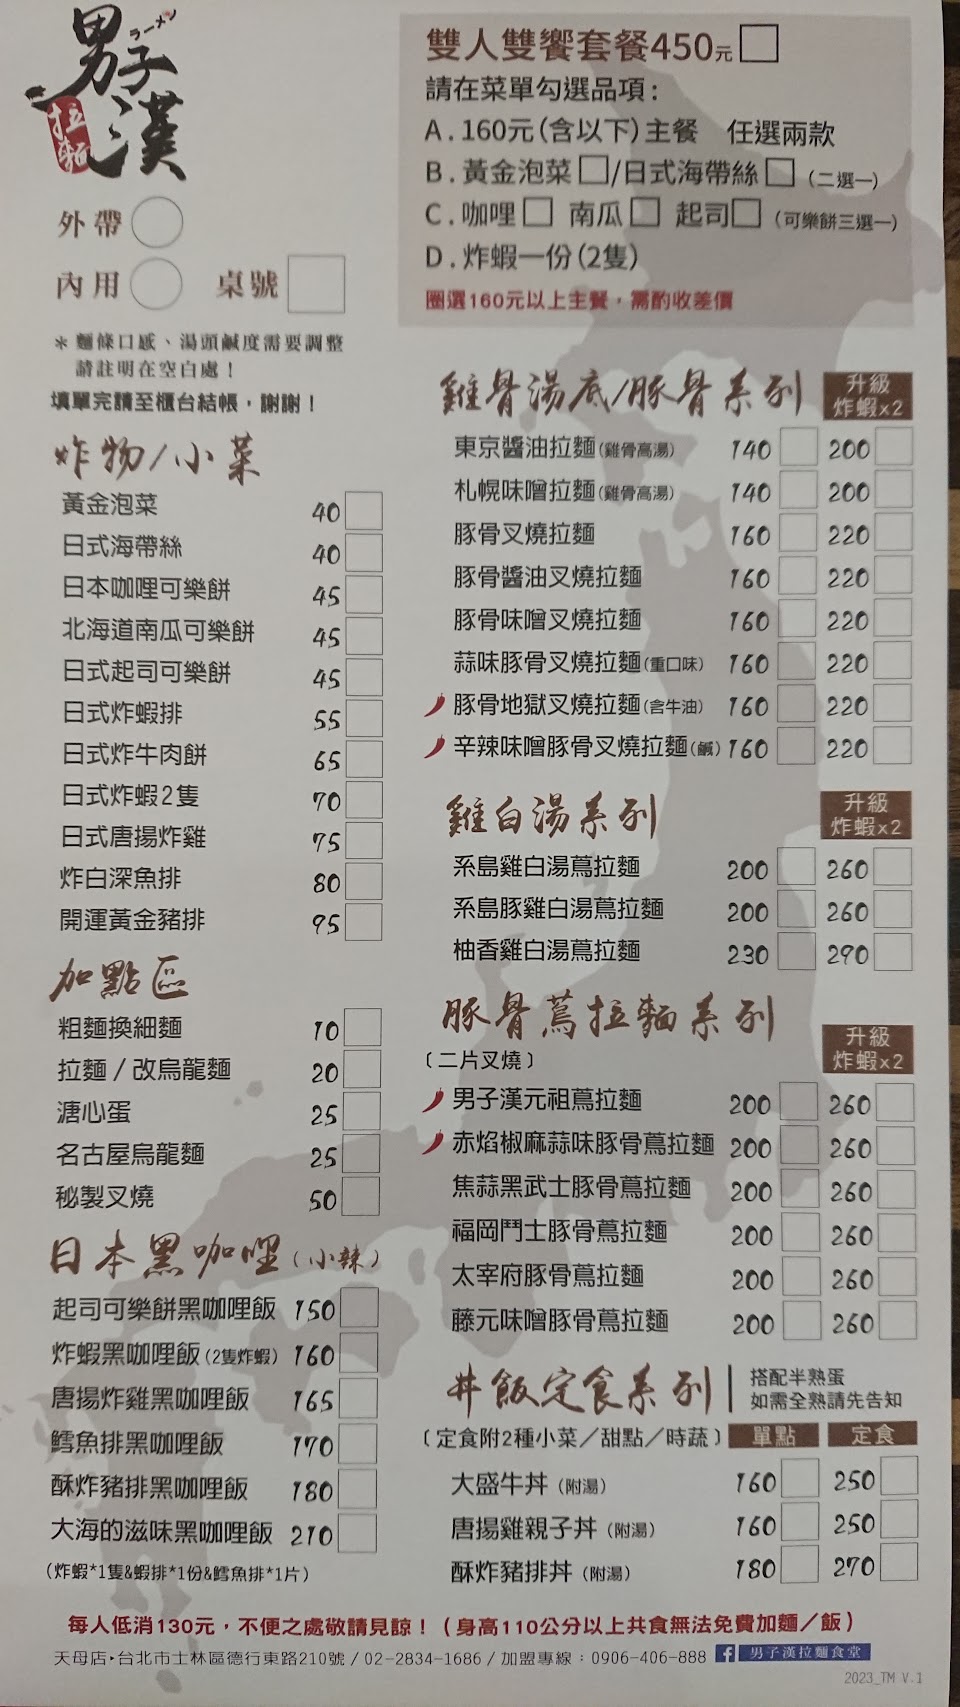 男子漢
ラーメン
拉麵
外帶
內用 桌號
＊麵條口感、湯頭鹹度需要調整
請註明在空白處！
填單完請至櫃台結帳，謝謝！
雙人雙饗套餐450元
請在菜單勾選品項：
A.160元(含以下)主餐 任選兩款
B.黃金泡菜 /日式海帶絲 (二選一)
C.咖哩 南瓜 起司 (可樂餅三選一)
D.炸蝦一份(2隻)
圈選160元以上主餐，需酌收差價
炸物/小菜
黃金泡菜 40
日式海帶絲 40
日本咖哩可樂餅 45
北海道南瓜可樂餅 45
日式起司可樂餅 45
日式炸蝦排 55
日式炸牛肉餅 65
日式炸蝦2隻 70
日式唐揚炸雞 75
炸白深魚排 80
開運黃金豬排 95
加點區
粗麵換細麵 10
拉麵/改烏龍麵 20
溏心蛋 25
名古屋烏龍麵 25
秘製叉燒 50
日本黑咖哩(小辣)
起司可樂餅黑咖哩飯 150
炸蝦黑咖哩飯(2隻炸蝦) 160
唐揚炸雞黑咖哩飯 165
鱈魚排黑咖哩飯 170
酥炸豬排黑咖哩飯 180
大海的滋味黑咖哩飯 210
(炸蝦*1隻&蝦排*1份&鱈魚排*1片)
雞骨湯底/豚骨系列 升級
炸蝦x2
東京醬油拉麵(雞骨高湯) 140 200
札幌味噌拉麵(雞骨高湯) 140 200
豚骨叉燒拉麵 160 220
豚骨醬油叉燒拉麵 160 220
豚骨味噌叉燒拉麵 160 220
蒜味豚骨叉燒拉麵(重口味) 160 220
豚骨地獄叉燒拉麵(含牛油) 160 220
辛辣味噌豚骨叉燒拉麵(鹹) 160 220
雞白湯系列 升級
炸蝦x2
系島雞白湯蔦拉麵 200 260
系島豚雞白湯蔦拉麵 200 260
柚香雞白湯蔦拉麵 230 290
豚骨蔦拉麵系列 升級
炸蝦x2
(二片叉燒)
男子漢元祖蔦拉麵 200 260
赤焰椒麻蒜味豚骨蔦拉麵 200 260
焦蒜黑武士豚骨蔦拉麵 200 260
福岡鬥士豚骨蔦拉麵 200 260
太宰府豚骨蔦拉麵 200 260
藤元味噌豚骨蔦拉麵 200 260
丼飯定食系列
搭配半熟蛋
如需全熟請先告知
(定食附2種小菜/甜點/時蔬) 單點 定食
大盛牛丼(附湯) 160 250
唐揚雞親子丼(附湯) 160 250
酥炸豬排丼(附湯) 180 270
每人低消130元，不便之處敬請見諒！(身高110公分以上共食無法免費加麵/飯)
天母店▸台北市士林區德行東路210號/02-2834-1686/加盟專線：0906-406-888 f 男子漢拉麵食堂
2023_TM V.1